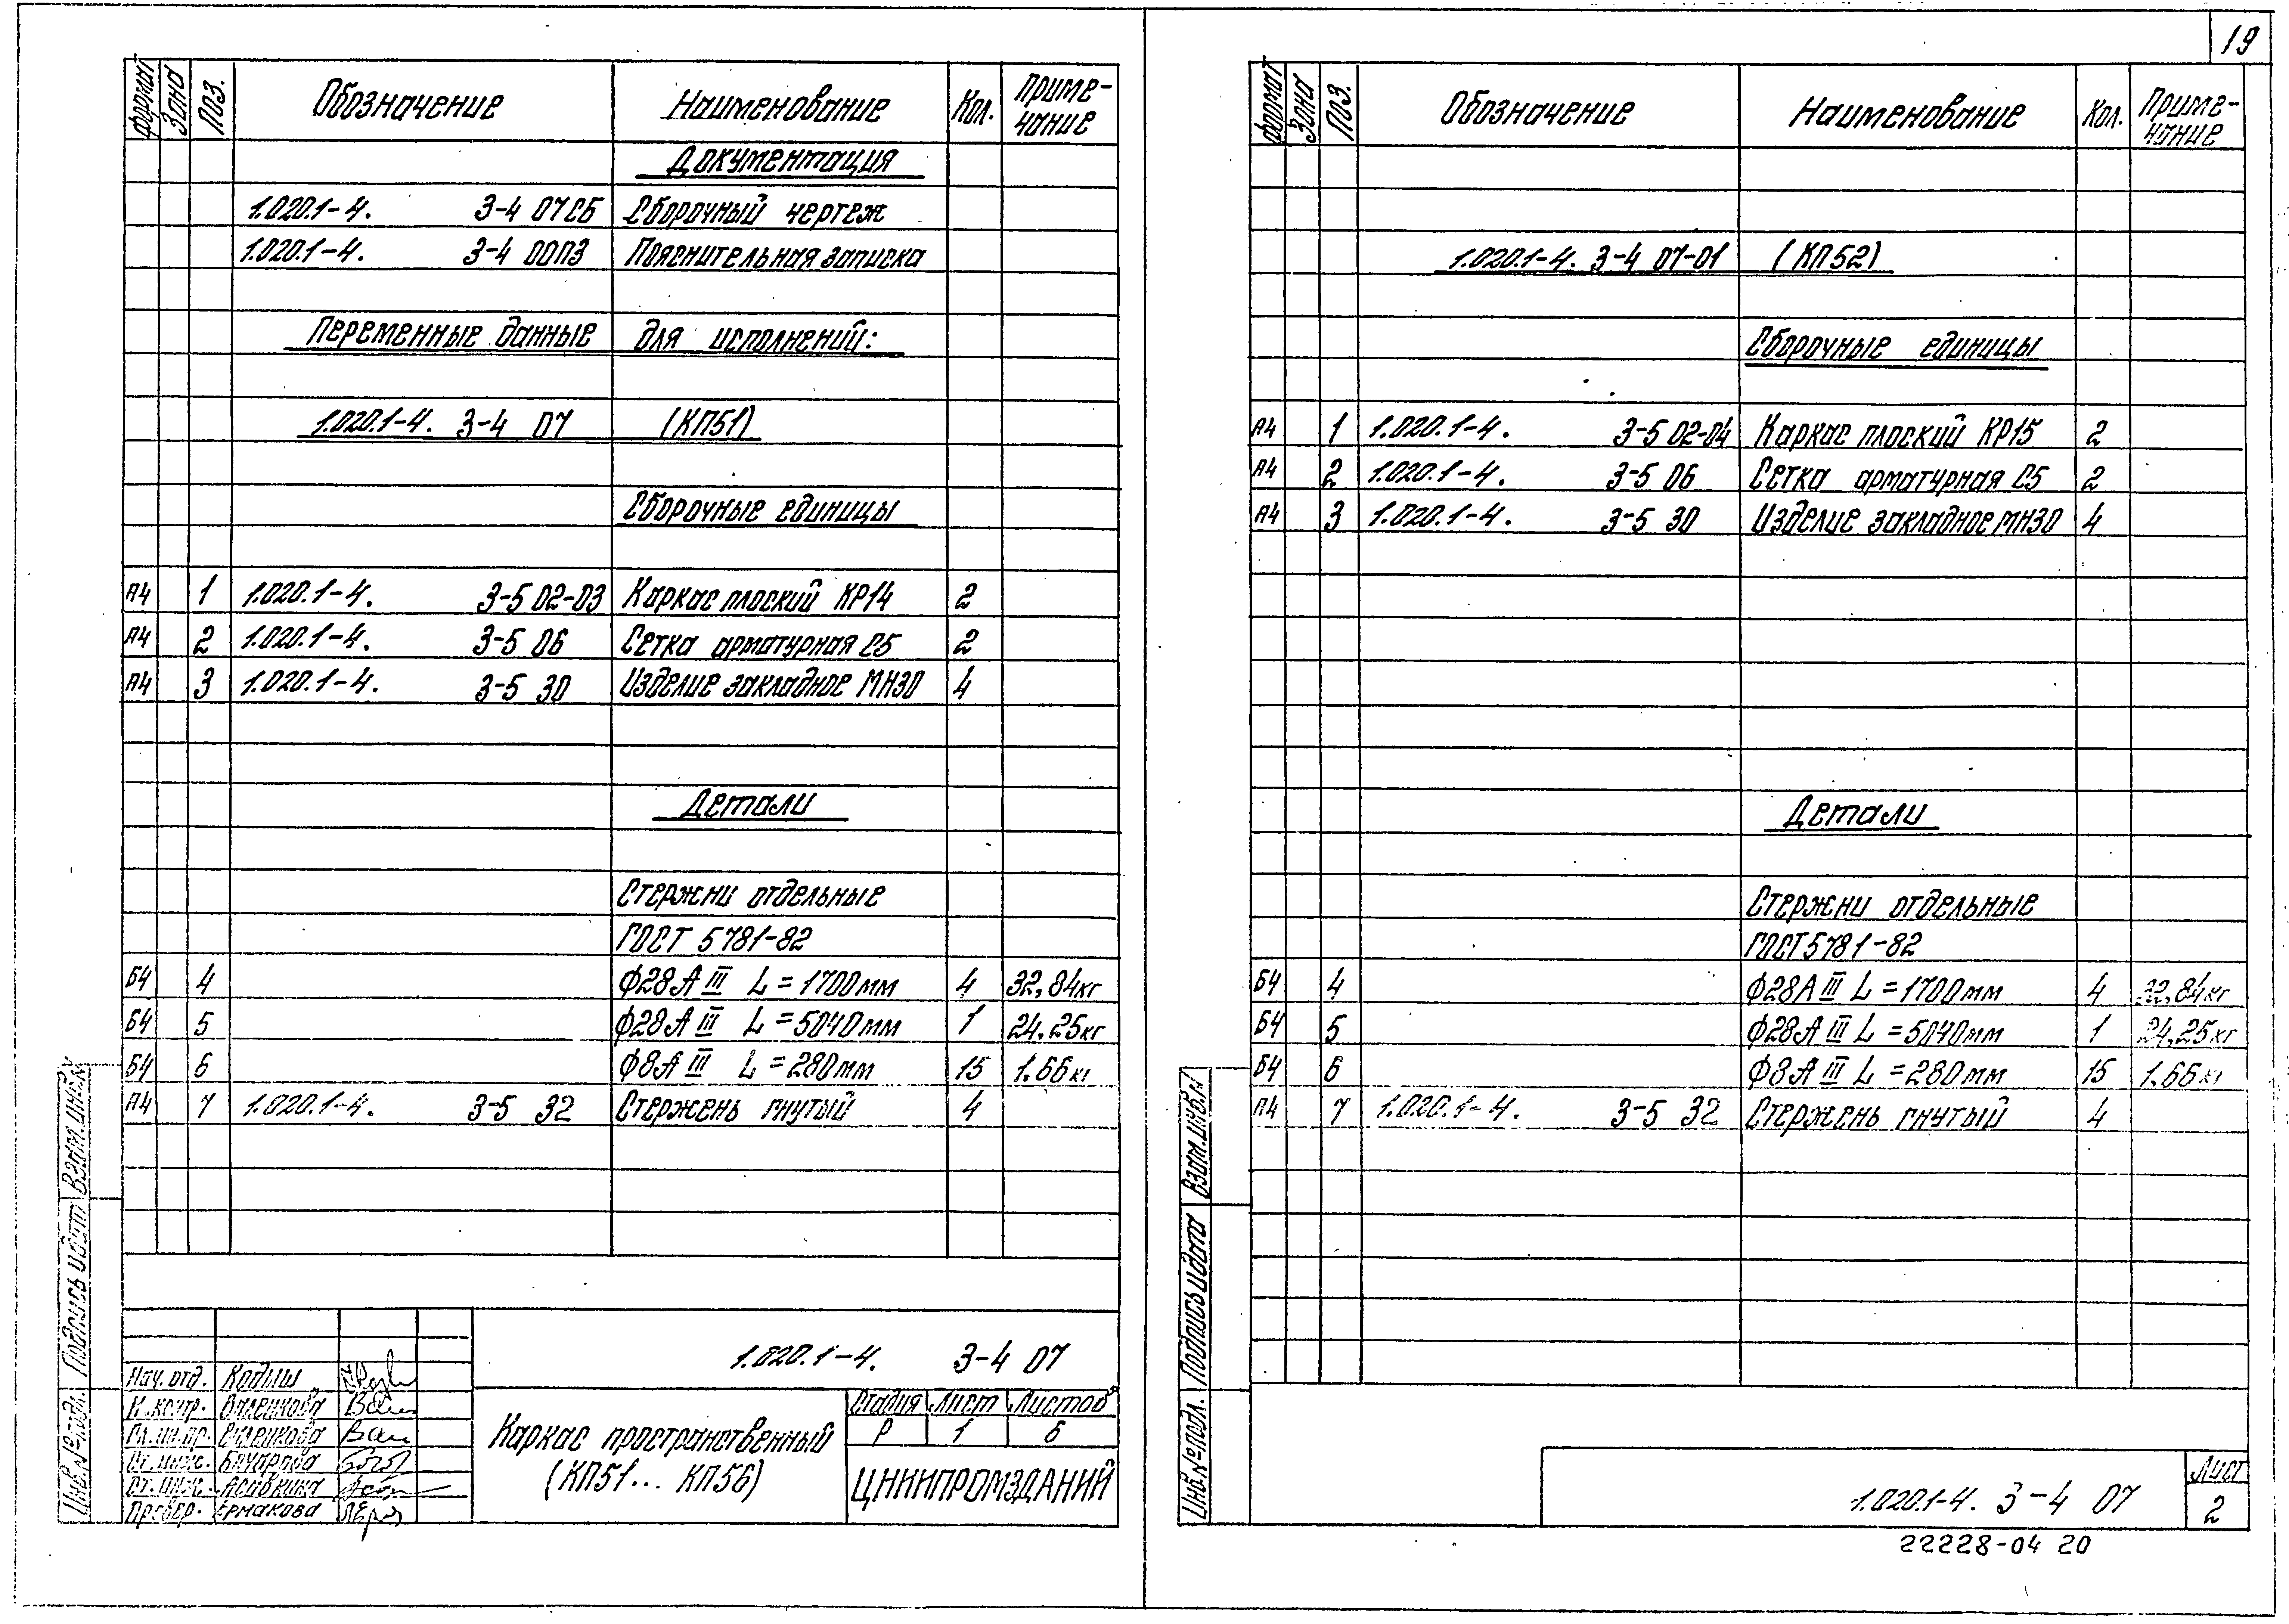 19
Формат Зона Поз. Обозначение Наименование Кол. Приме-
чание
Документация
1.020.1-4. 3-4 07СБ Сборочный чертеж
1.020.1-4. 3-4 00ПЗ Пояснительная записка
Переменные данные для исполнений:
1.020.1-4. 3-4 07 (КП51)
Сборочные единицы
А4 1 1.020.1-4. 3-5 02-03 Каркас плоский КР14 2
А4 2 1.020.1-4. 3-5 06 Сетка арматурная С5 2
А4 3 1.020.1-4. 3-5 30 Изделие закладное МН30 4
Детали
Стержни отдельные
ГОСТ 5781-82
Б4 4 Ф28АIII L=1700мм 4 32,84кг
Б4 5 Ф28АIII L=5040мм 1 24.25кг
Б4 6 Ф8АIII L=280мм 15 1.66кг
А4 7 1.020.1-4. 3-5 32 Стержень гнутый 4
Инв.№подл. Подпись и дата Взам.инв.№
1.020.1-4. 3-4 07
Нач. отд. Кодыш
Н.контр. Виленкова
Гл.ин.пр. Виленкова
Ст.инж. Бочарова
Ст.инж.
Провер. Ермакова
Каркас пространственный
(КП51... КП56)
Стадия Лист Листов
Р 1 6
ЦНИИПРОМЗДАНИЙ
Формат Зона Поз. Обозначение Наименование Кол. Приме-
чание
1.020.1-4. 3-4 07-01 (КП52)
Сборочные единицы
А4 1 1.020.1-4. 3-5 02-04 Каркас плоский КР15 2
А4 2 1.020.1-4. 3-5 06 Сетка арматурная С5 2
А4 3 1.020.1-4. 3-5 30 Изделие закладное МН30 4
Детали
Стержни отдельные
ГОСТ 5781-82
Б4 4 Ф28АIII L=1700мм 4 32,84кг
Б4 5 Ф28АIII L=5040мм 1 24,25кг
Б4 6 Ф8АIII L=280мм 15 1.66кг
А4 7 1.020.1-4. 3-5 32 Стержень гнутый 4
Инв.№подл. Подпись и дата Взам.инв.№
1.020.1-4. 3-4 07
Лист
2
22228-04 20